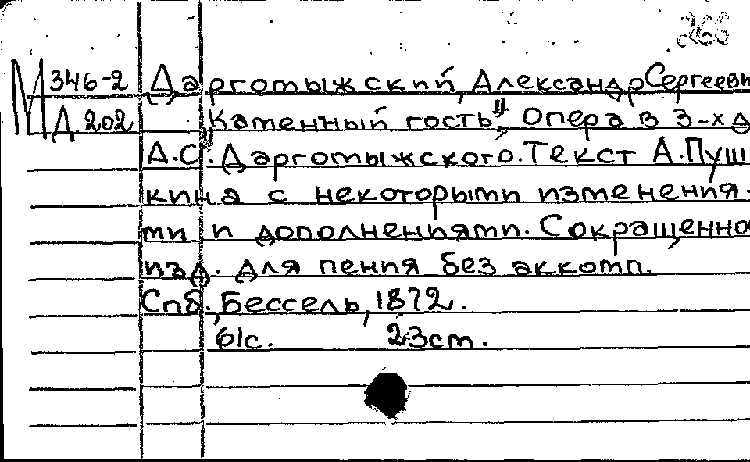 268
М 346-2 Даргомыжский, Александр Сергееви
Д 202 "Каменный гость", Опера в 3-х д
А.С. Даргомыжского. Текст А.Пуш
кина с некоторыми изменения-
ми и дополнениями. Сокращенно
изд. для пения без аккомп.
Спб., Бессель, 1872.
61с. 23см.